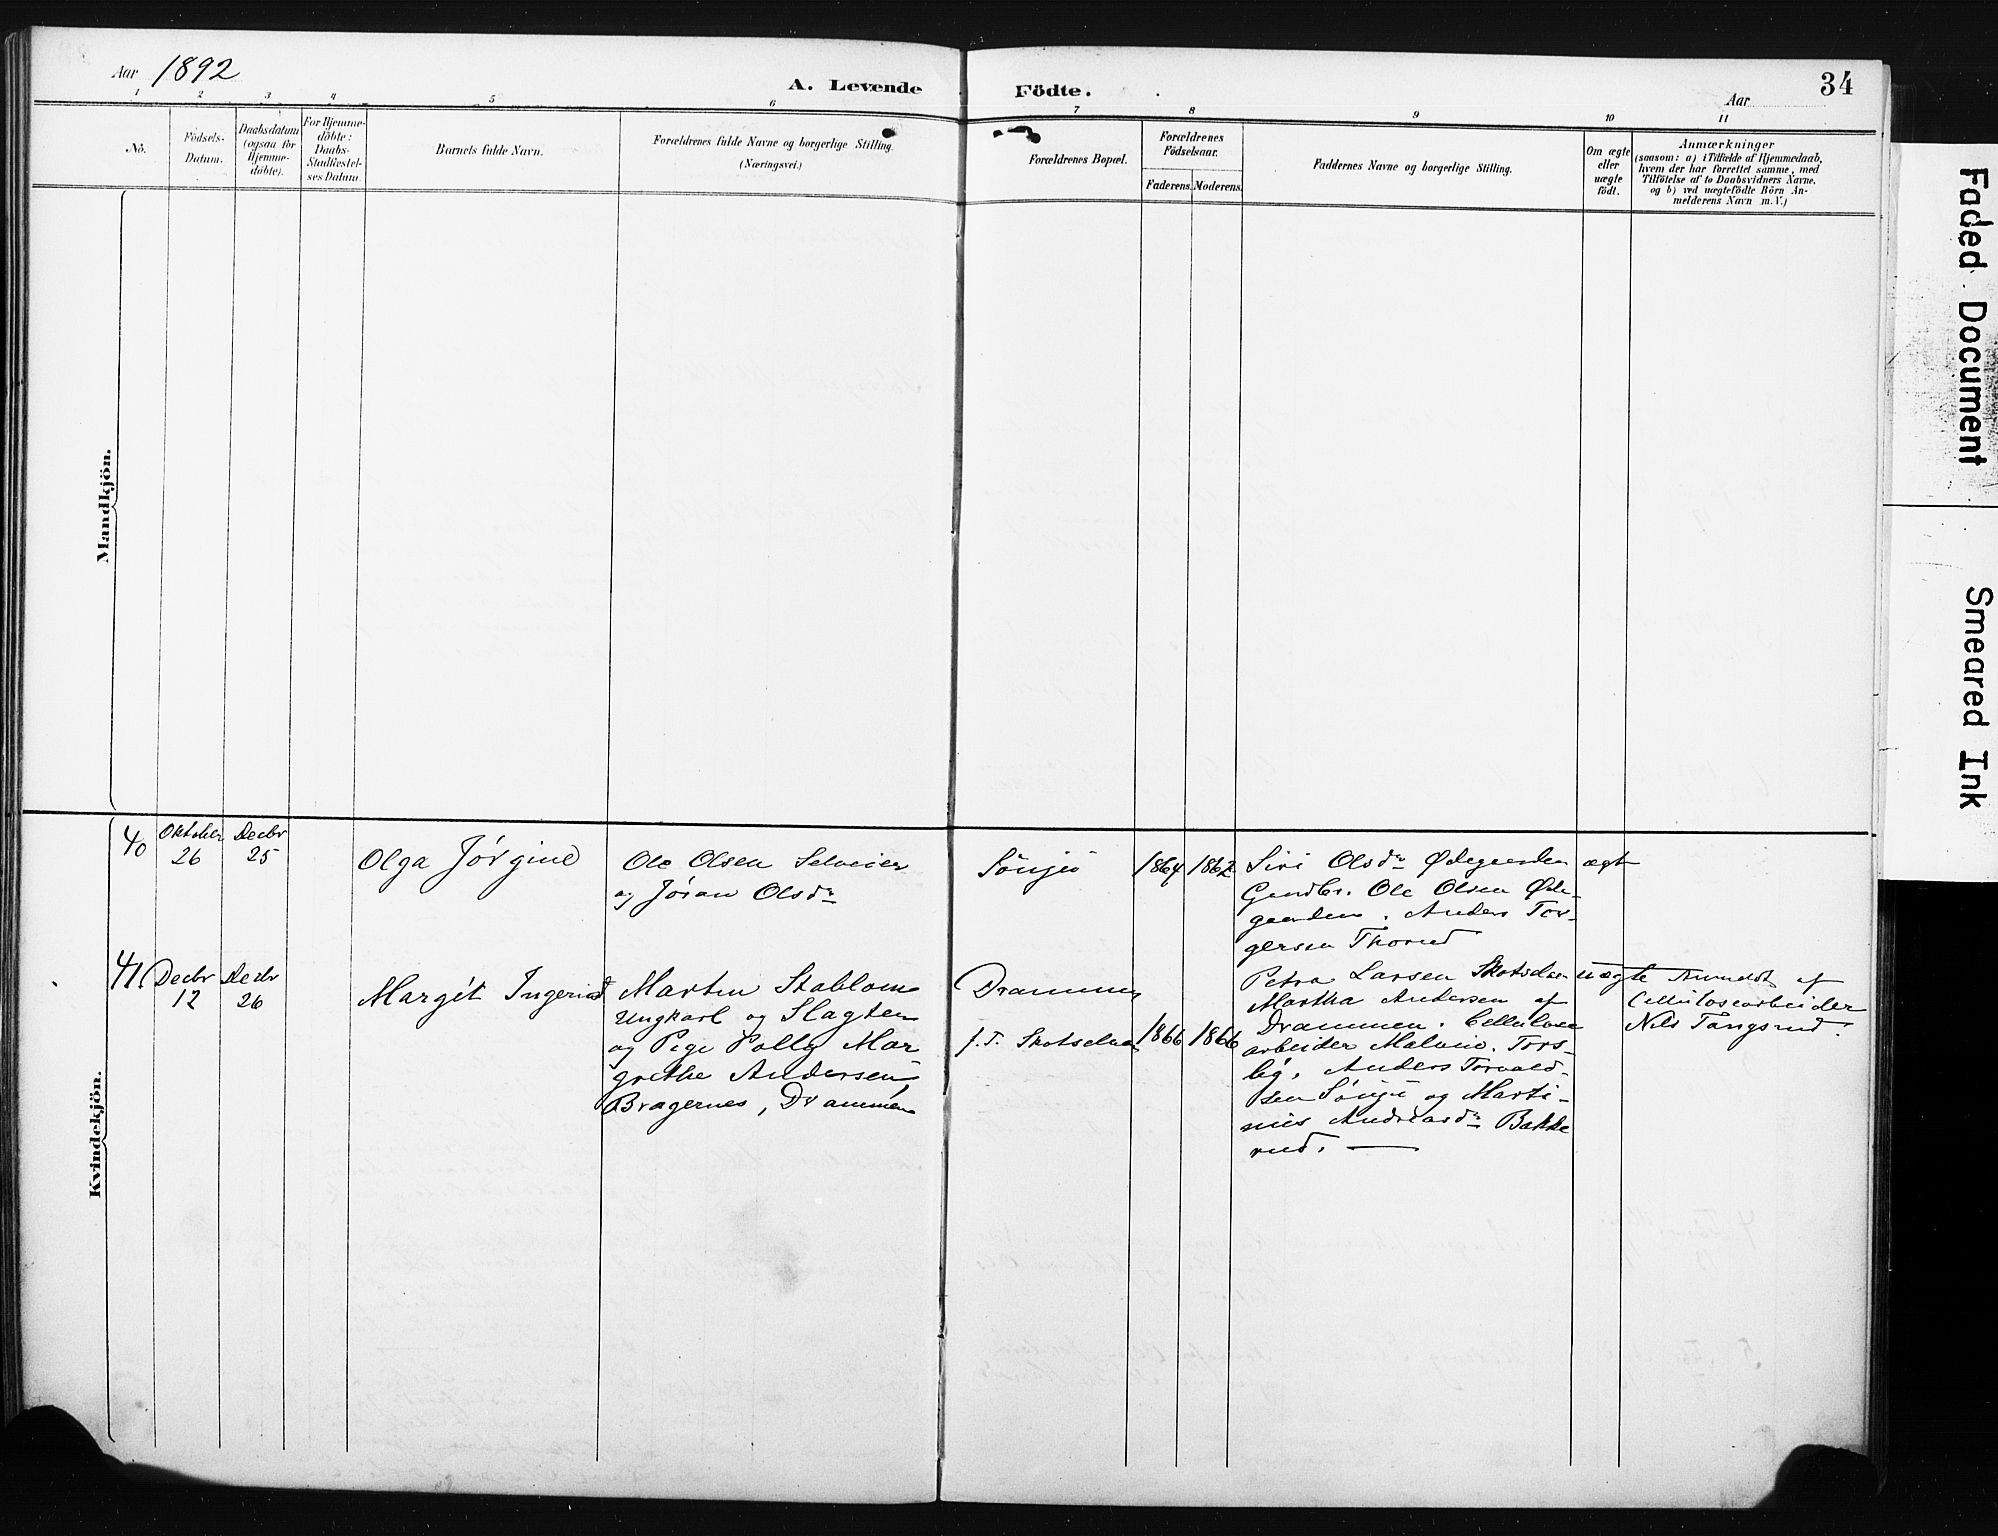 Aar 1892
A. Levende Födte.
34
Aar
1 2 3 4 5 6 7 8 9 10 11
No.
Födsels-
Datum.
Daabsdatum
(ogsaa for
Hjemme-
döbte).
For Hjemme-
döbte:
Daabs-
Stadfæstel-
ses Datum.
Barnets fulde Navn.
Forældrenes fulde Navne og borgerlige Stilling.
(Næringsvei.)
Forældrenes Bopæl.
Forældrenes
Födselsaar.
Faderens. Moderens.
Faddernes Navne og borgerlige Stilling.
Om ægte
eller
uægte
födt.
Anmærkninger
(saasom: a) i Tilfælde af Hjemmedaab,
hvem der har forrettet samme, med
Tilföielse af to Daabsvidners Navne,
og b) ved uægtefödte Börn An-
melderens Navn m. V.)
Mandkjön.
Kvindekjön.
40
Oktober
26
Decbr
25
Olga Jørgine
Ole Olsen
og Jöran Olsdr
1864 1862
Siri Olsdr Ødegaarden
Ole Olsen Øde-
gaarden. Anders Tor-
gersen Thorud
ægt
41
Decbr
12
Decbr
26
Margit Ingerid
Martin
Ungkarl og Slagter
og Pige Polly Mar
grethe Andersen,
Bragernes, Drammen
Drammen
f.T. Skotselven
1866 1866
Petra Larsen Skotselven
Martha Andersen af
Drammen. Cellulose
arbeider
Anders Torvald-
sen og Marti-
nus Bakke
rud.
uægte
Anmeldt af
Cellulosearbeider
Nils
Faded Document
Smeared Ink